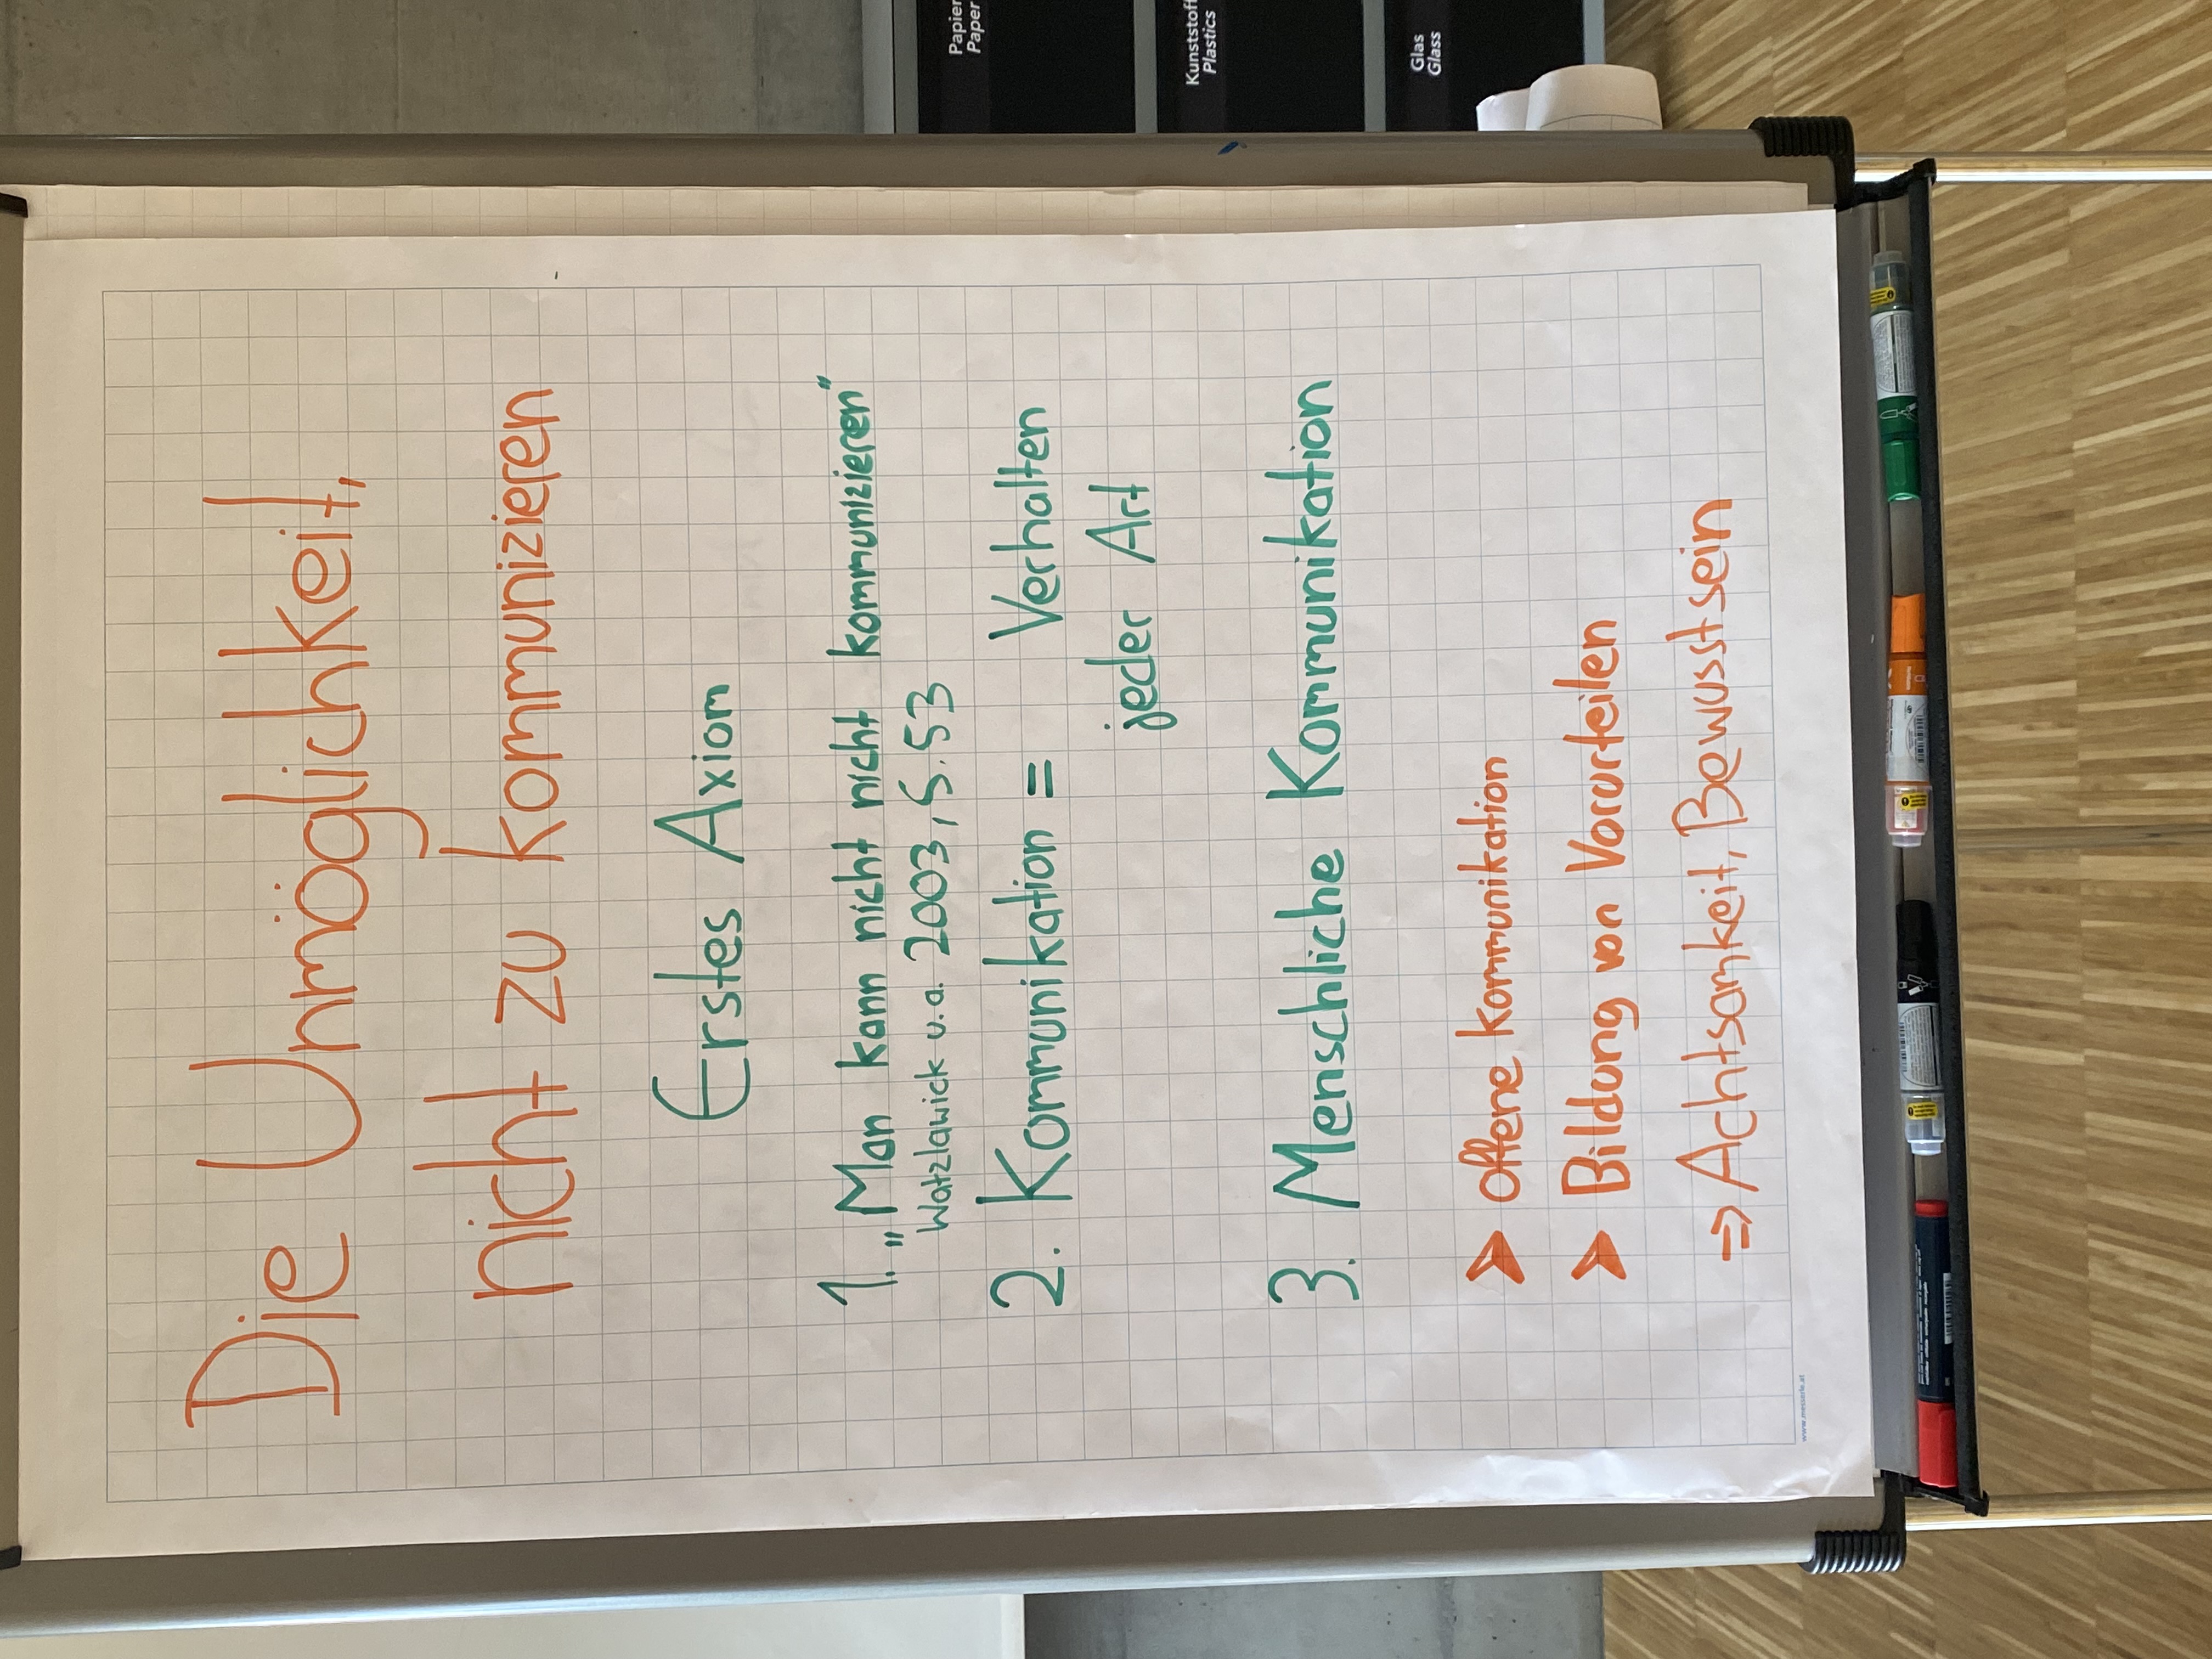 Papier
Paper
Kunststoff
Plastics
Glas
Glass
Die Unmöglichkeit,
nicht zu kommunizieren
Erstes Axiom
1. „Man kann nicht nicht kommunizieren“
Watzlawick u.a. 2003, S. 53
2. Kommunikation = Verhalten
jeder Art
3. Menschliche Kommunikation
➤ offene Kommunikation
➤ Bildung von Vorurteilen
⇒ Achtsamkeit, Bewusstsein
www.messerle.at